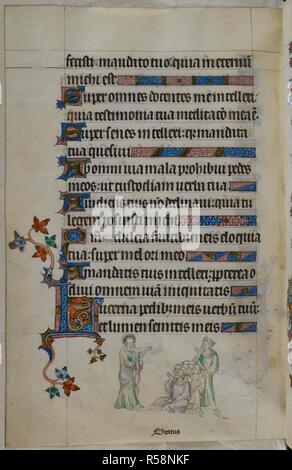 fecisti mandato tuo quia in eternum
michi est
Super omnes docentes me intellexi:
quia testimonia tua meditacio mea est
Super senes intellexi: q: mandata
tua quesiui
Ab omni uia mala prohibui pedes
meos: ut custodiam uerba tua
A iudiciis tuis non declinaui: quia tu
legem posuisti michi
Quam dulcia faucibus meis eloquia
tua: super mel ori meo
A mandatis tuis intellexi: propterea o
diui omnem uiam iniquitatis
Lucerna pedibus meis uerbum tuum:
et lumen semitis meis
alamy
R58NKF